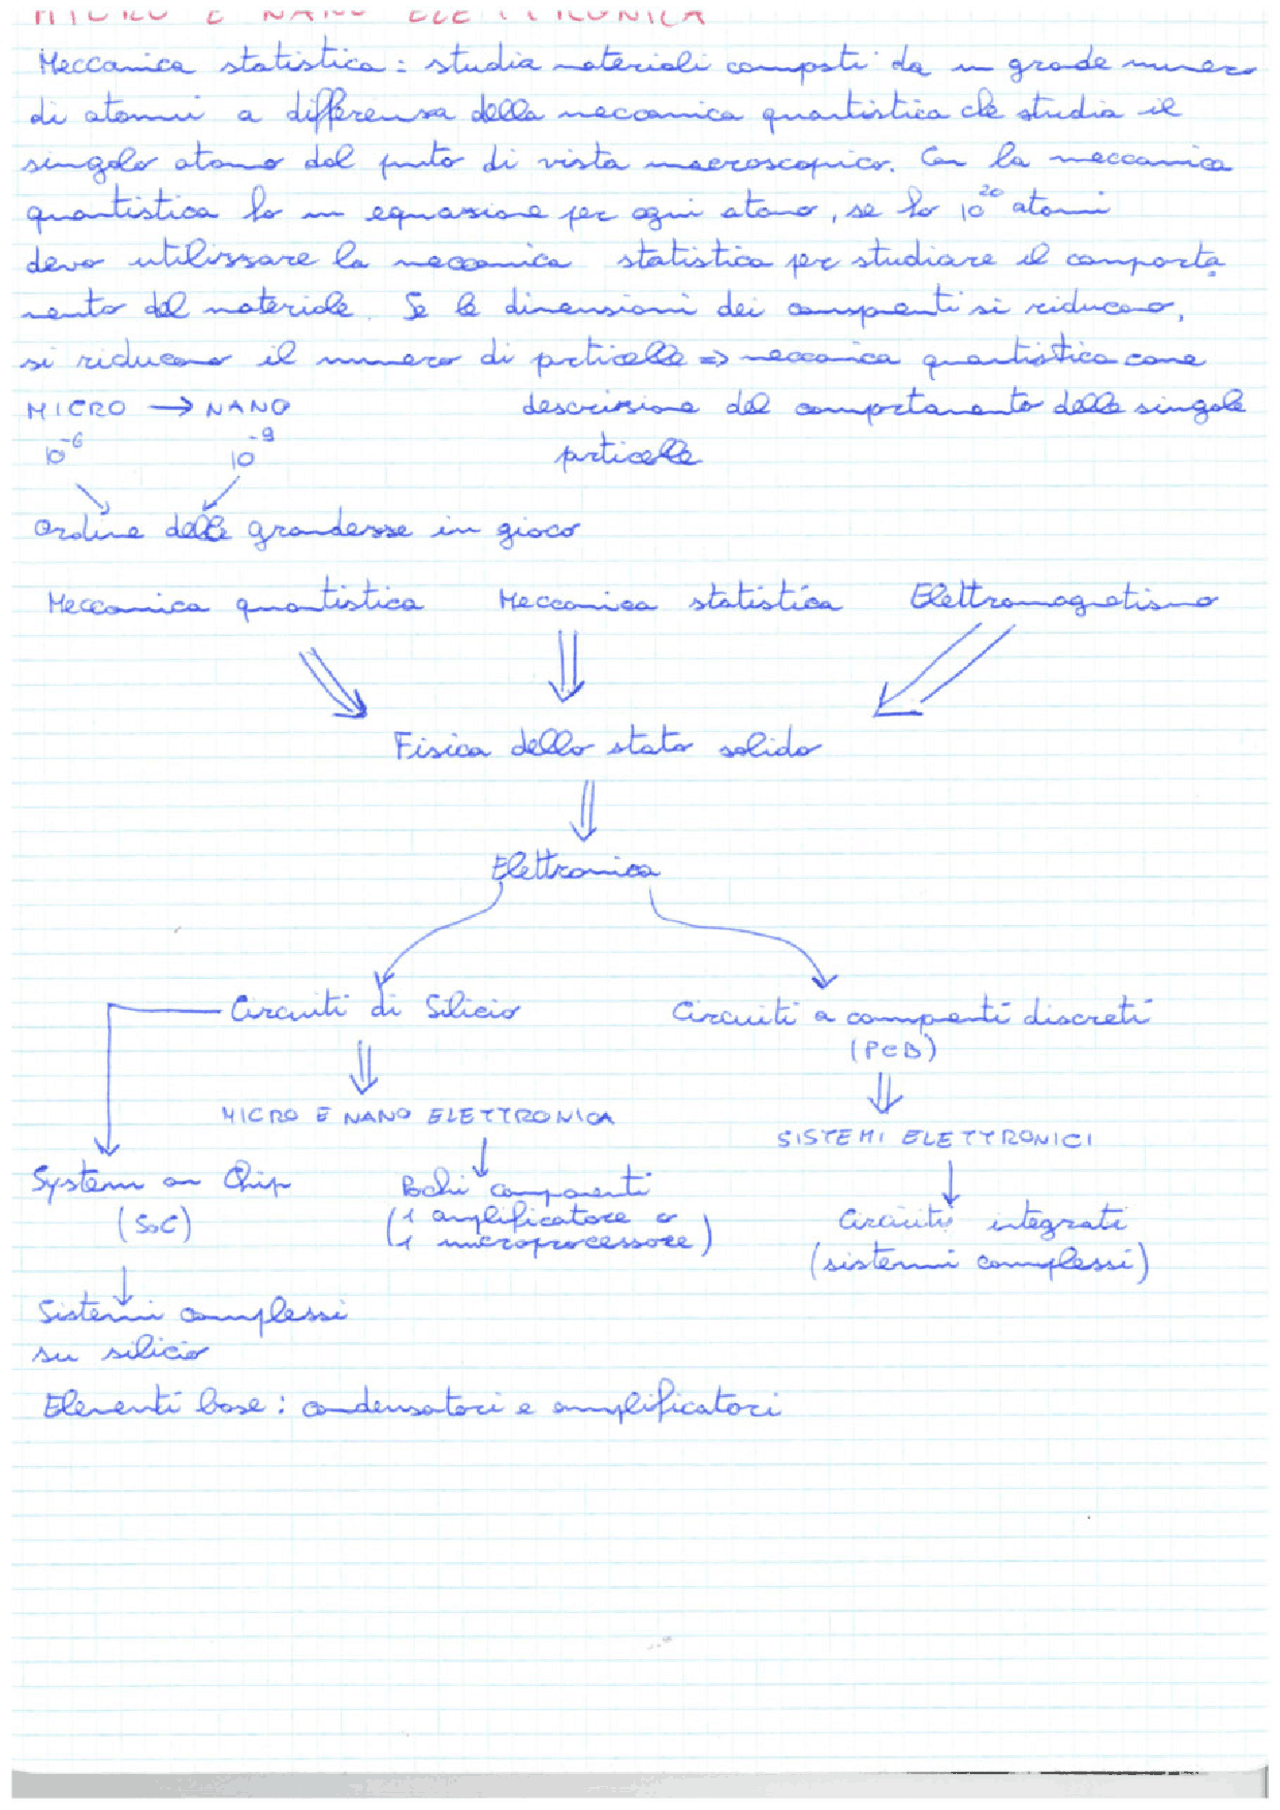 MICRO E NANO ELETTRONICA
Meccanica statistica: studia materiali composti da un grade numero
di atomi a differenza della meccanica quantistica che studia il
singolo atomo dal punto di vista macroscopico. Con la meccanica
quantistica ho un equazione per ogni atomo, se ho 10^20 atomi
devo utilizzare la meccanica statistica per studiare il comporta
mento del materiale. Se le dimensioni dei componenti si riducono,
si riducono il numero di particelle => meccanica quantistica come
MICRO → NANO descrizione del comportamento delle singole
10^-6 10^-9 particelle
Ordine delle grandezze in gioco
Meccanica quantistica Meccanica statistica Elettromagnetismo
Fisica dello stato solido
Elettronica
Circuiti di Silicio Circuiti a componenti discreti
(PCB)
MICRO E NANO ELETTRONICA
SISTEMI ELETTRONICI
System on Chip Pochi componenti
(SoC) (1 amplificatore o Circuiti integrati
1 microprocessore) (sistemi complessi)
Sistemi complessi
su silicio
Elementi base: condensatori e amplificatori